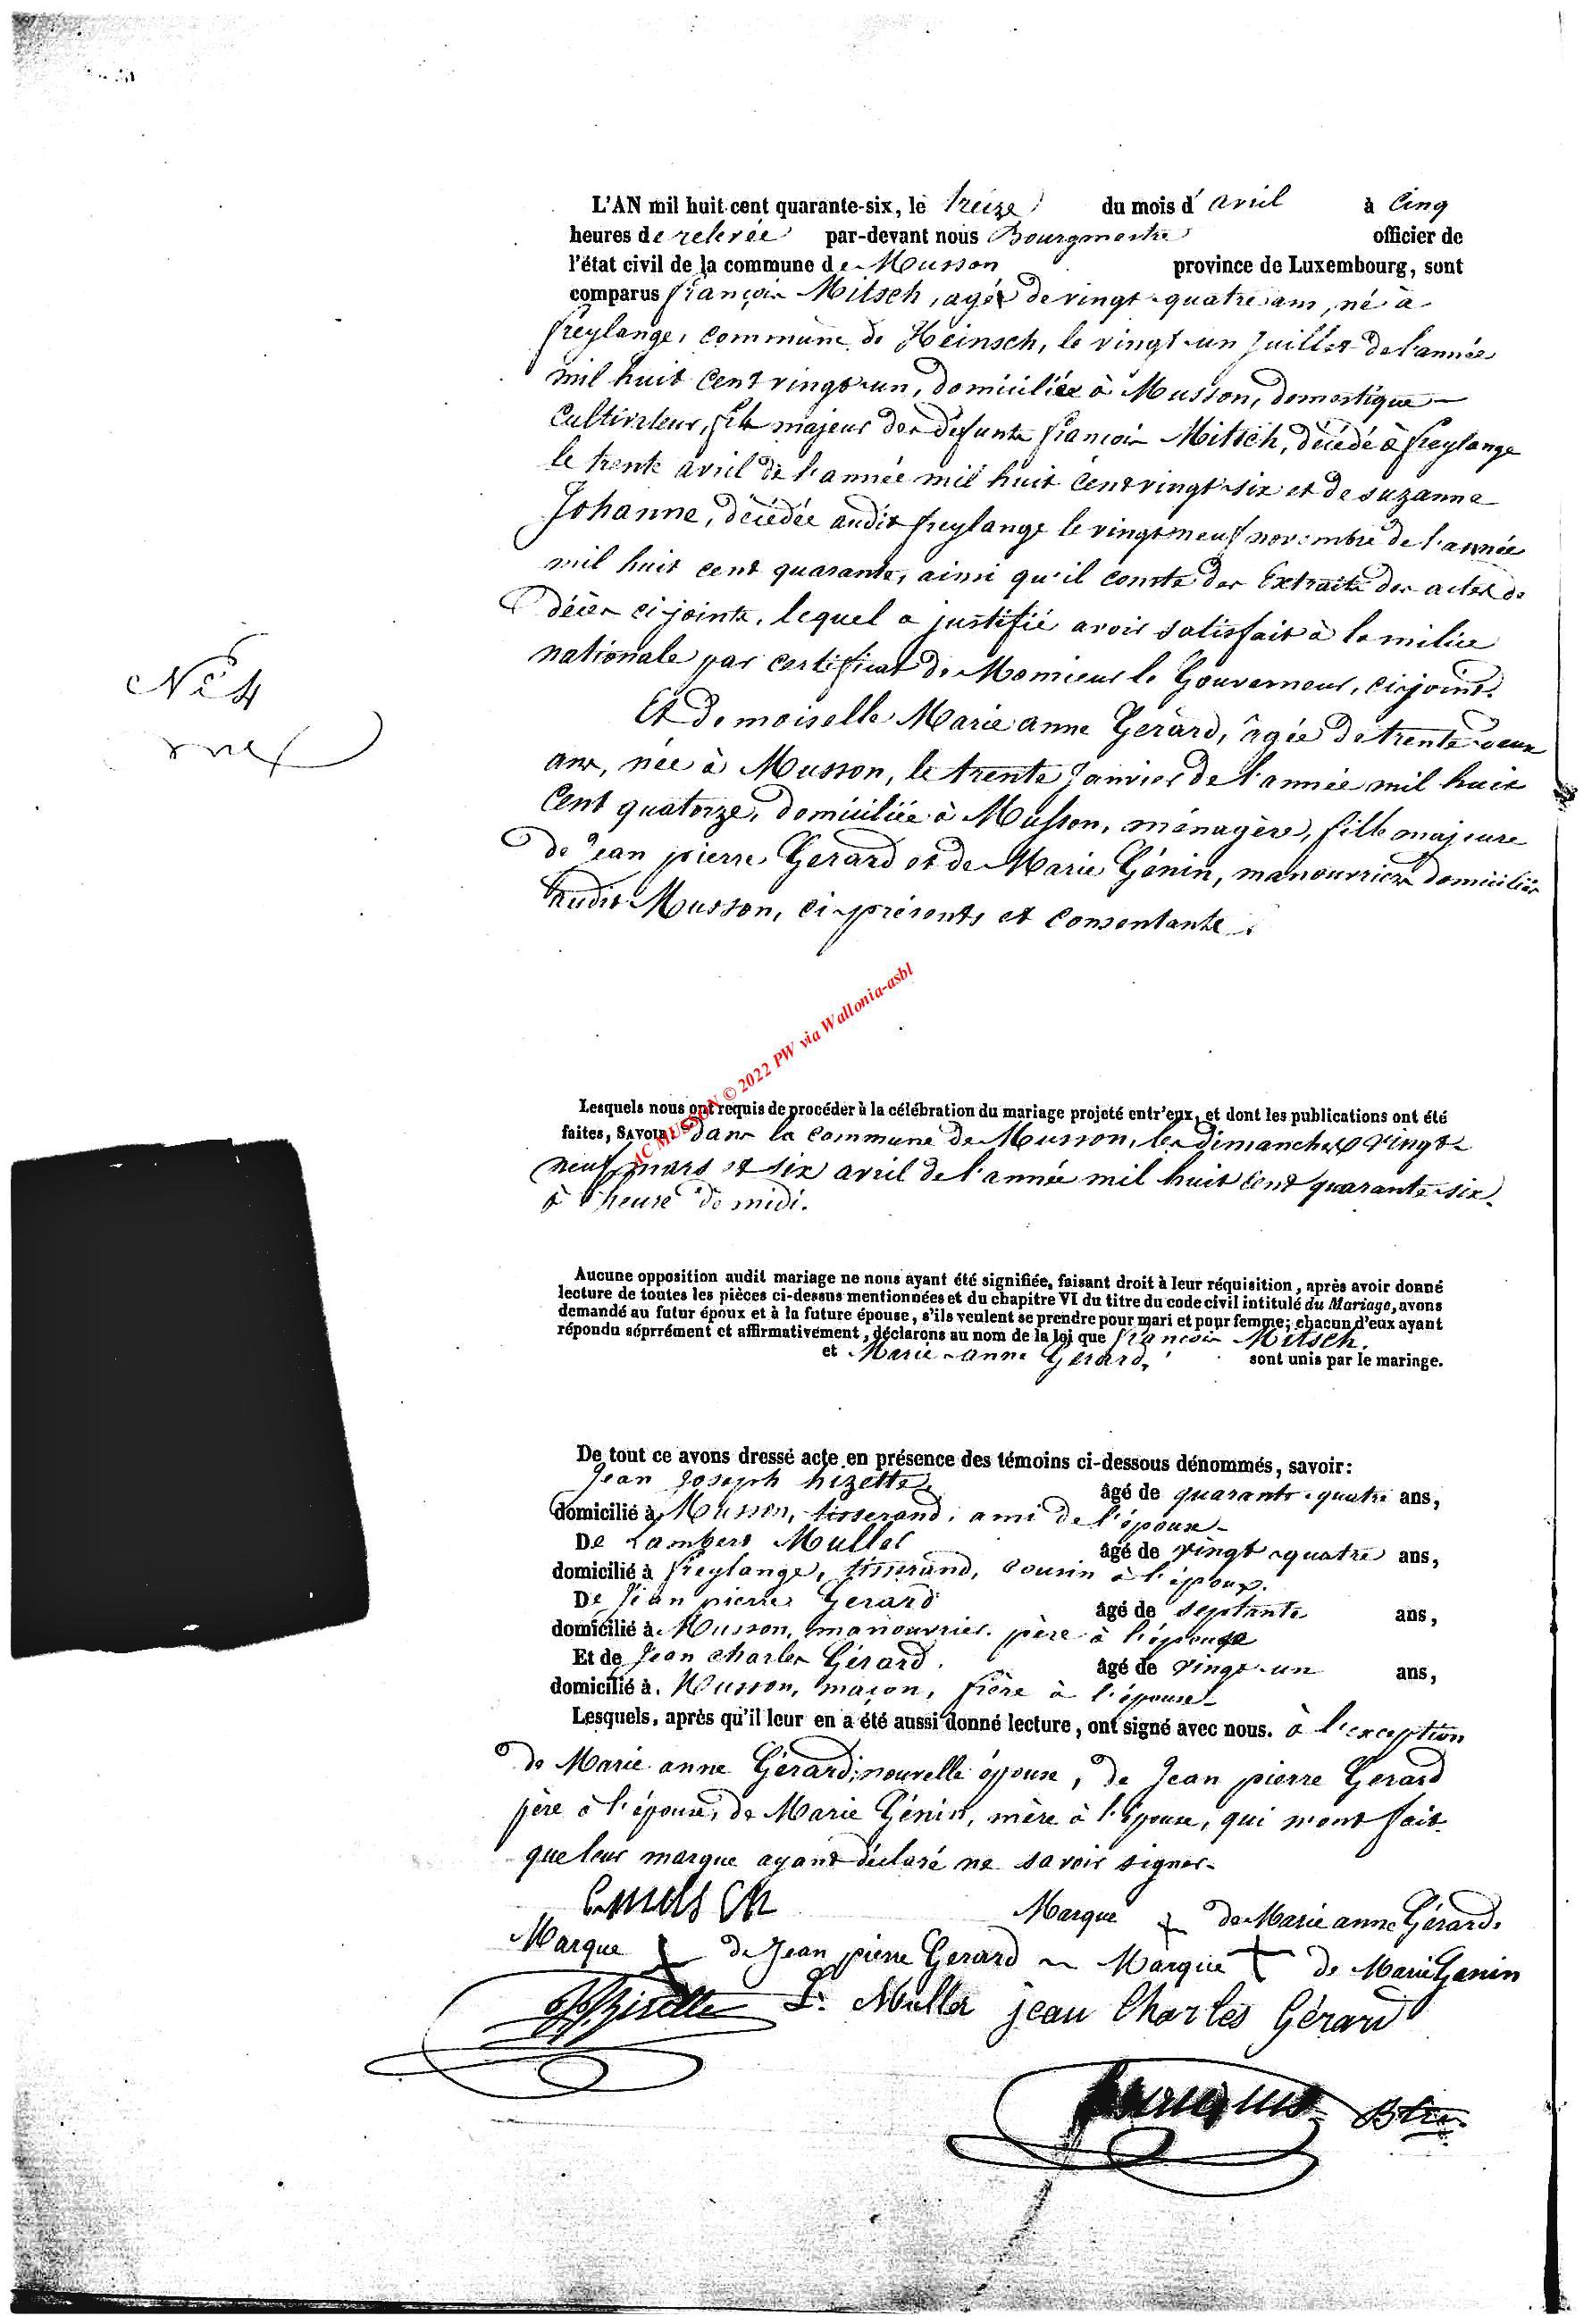 L'AN mil huit cent quarante-six, le treize du mois d'avril à cinq
heures de relevée par-devant nous Bourgmestre officier de
l'état civil de la commune de Musson province de Luxembourg, sont
comparus françois Mitsch, agé de vingt-quatre ans, né à
freylange, commune de Heinsch, le vingt-un Juillet de l'année
mil huit cent vingt-un, domicilié à Musson, domestique
Cultivateur, fils majeur des défunts françois Mitsch, décédé à freylange
le trente avril de l'année mil huit cent vingt-six et de suzanne
Johanne, décédée audit freylange le vingt neuf novembre de l'année
mil huit cent quarante, ainsi qu'il conste des Extraits des actes de
décès ci-joints, lequel a justifié avoir satisfait à la milice
nationale par certificat de Monsieur le Gouverneur, ci-joint.
Nº 4
Et demoiselle Marie anne Gérard, âgée de trente deux
ans, née à Musson, le trente Janvier de l'année mil huit
cent quatorze, domiciliée à Musson, ménagère, fille majeure
de Jean pierre Gerard et de Marie Génin, manouvriers domiciliés
audit Musson, ci-présents et consentants.
AC MUSSON © 2022 PW via Wallonia-asbl
Lesquels nous ont requis de procéder à la célébration du mariage projeté entr'eux, et dont les publications ont été
faites, SAVOIR: dans la commune de Musson, les dimanches vingt-
neuf mars et six avril de l'année mil huit cent quarante-six
à l'heure de midi.
Aucune opposition audit mariage ne nous ayant été signifiée, faisant droit à leur réquisition, après avoir donné
lecture de toutes les pièces ci-dessus mentionnées et du chapitre VI du titre du code civil intitulé du Mariage, avons
demandé au futur époux et à la future épouse, s'ils veulent se prendre pour mari et pour femme; chacun d'eux ayant
répondu séprrément et affirmativement, déclarons au nom de la loi que françois Mitsch.
et Marie-anne Gérard, sont unis par le mariage.
De tout ce avons dressé acte en présence des témoins ci-dessous dénommés, savoir:
Jean Joseph hizette, âgé de quarante-quatre ans,
domicilié à Musson, tisserand, ami de l'épouse
De Lambert Muller âgé de vingt-quatre ans,
domicilié à freylange, tisserand, cousin à l'époux.
De Jean pierre Gerard âgé de septante ans,
domicilié à Musson, manouvrier, père à l'épouse
Et de Jean charles Gérard. âgé de vingt-un ans,
domicilié à Musson, maçon, frère à l'épouse
Lesquels, après qu'il leur en a été aussi donné lecture, ont signé avec nous. à l'exception
de Marie anne Gérard, nouvelle épouse, de Jean pierre Gerard
père à l'épouse, de Marie Génin, mère à l'épouse, qui n'ont fait
que leur marque ayant déclaré ne savoir signer.
Marque de Marie anne Gérard.
Marque de Jean pierre Gerard Marque de Marie Genin
L. Muller jean Charles Gérard